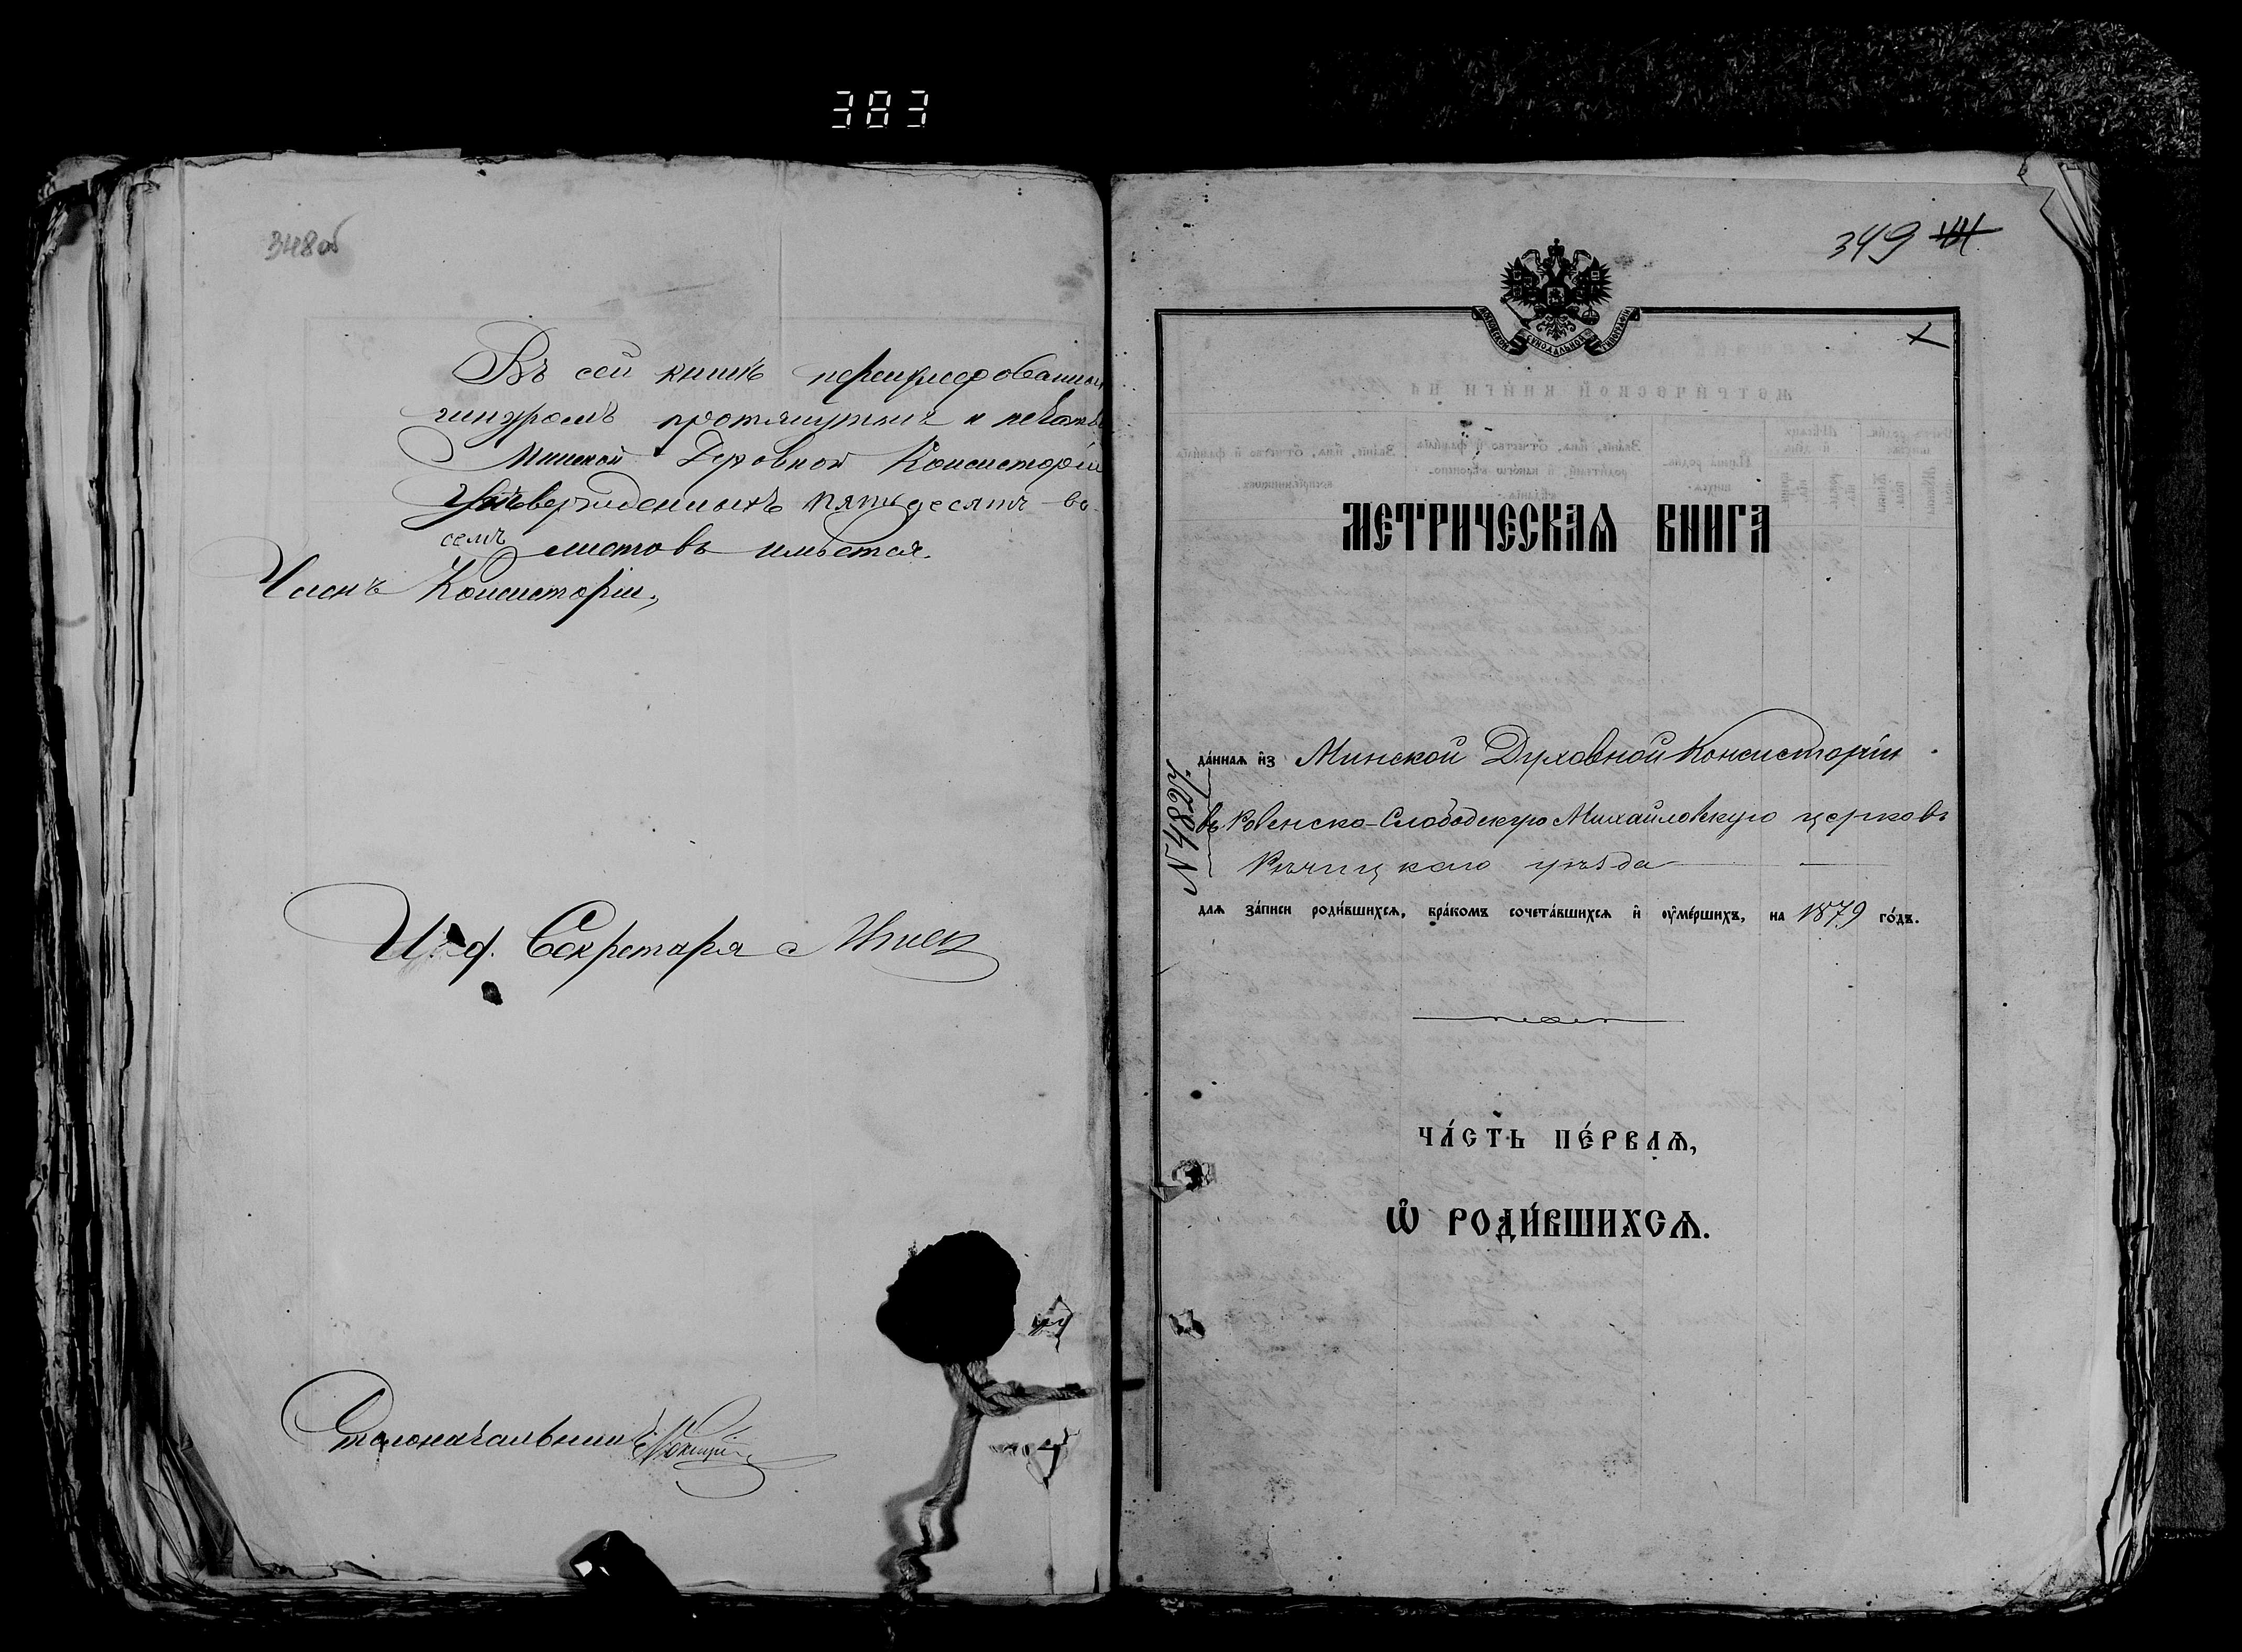 383
348об
Въ сей книгѣ перешнурованныхъ
шнуромъ протянутыхъ и печатью
Минской Духовной Консисторіи
утвержденныхъ пятьдесятъ во-
семь листовъ имѣется.
Членъ Консисторіи,
И. д. Секретаря
Столоначальникъ
349
МОСКОВСКОЙ СѴНОДАЛЬНОЙ ТИПОГРАФІИ
МЕТРИЧЕСКАѦ КНИГА
N 4827.
да́ннаѧ и҆з Минской Духовной Консисторіи
въ Ровенско-Слободскую Михайловскую церковь
Рѣчицкаго уѣзда
длѧ за́писи роди́вшихсѧ, бра́комъ сочета́вшихсѧ и҆ ᲂу҆ме́ршихъ, на 1879 го́дъ.
ЧА́СТЬ ПЕ́РВАѦ,
Ѽ РОДИ́ВШИХСѦ.